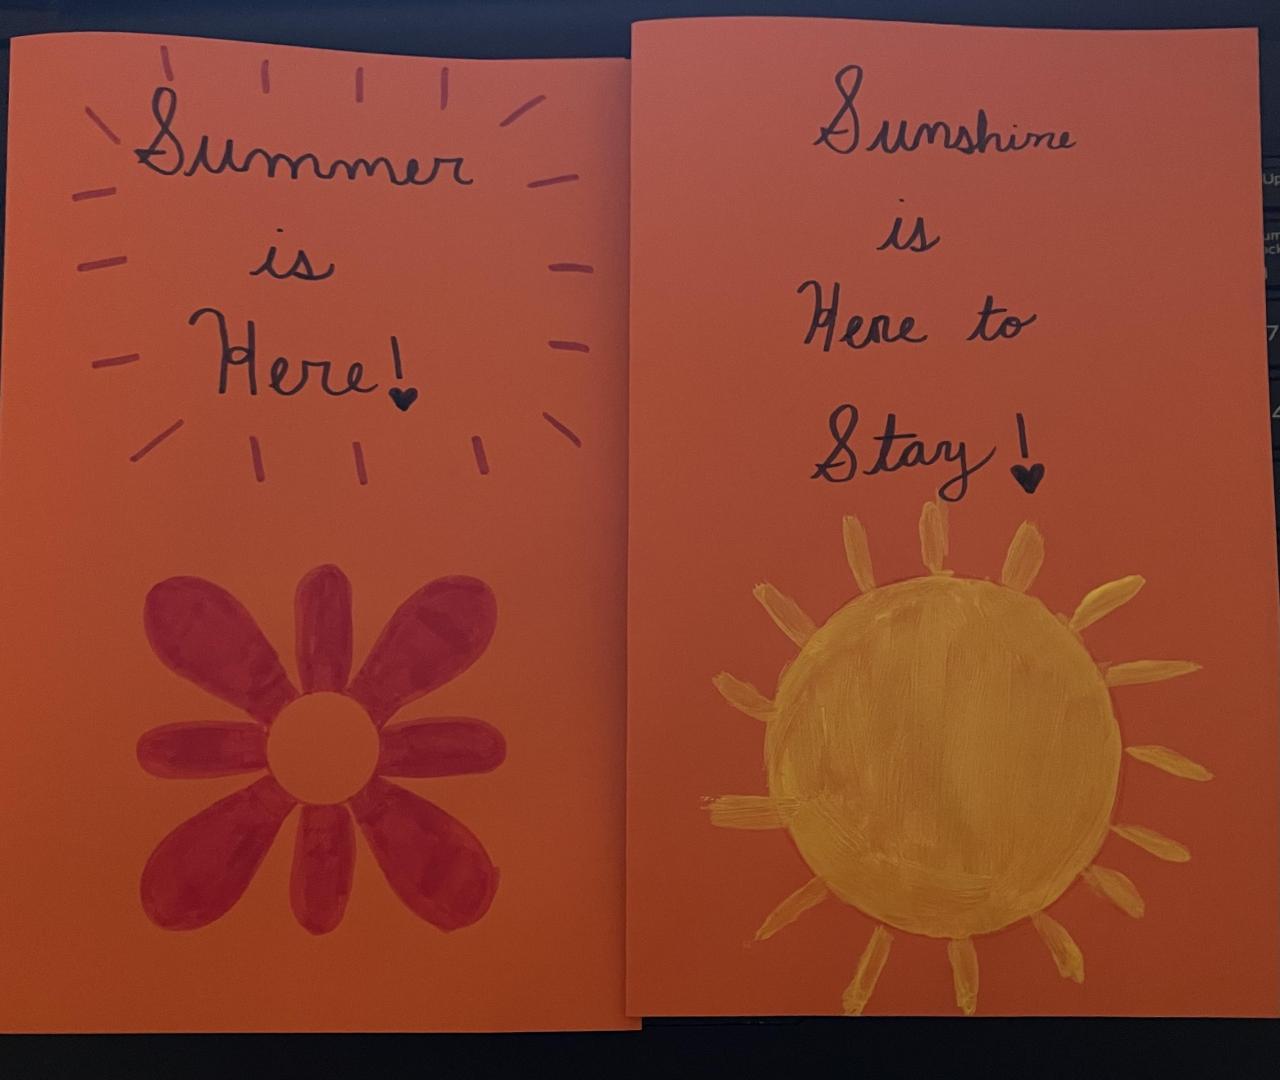 Summer
is
Here!
Sunshine
is
Here to
Stay!
Up
7